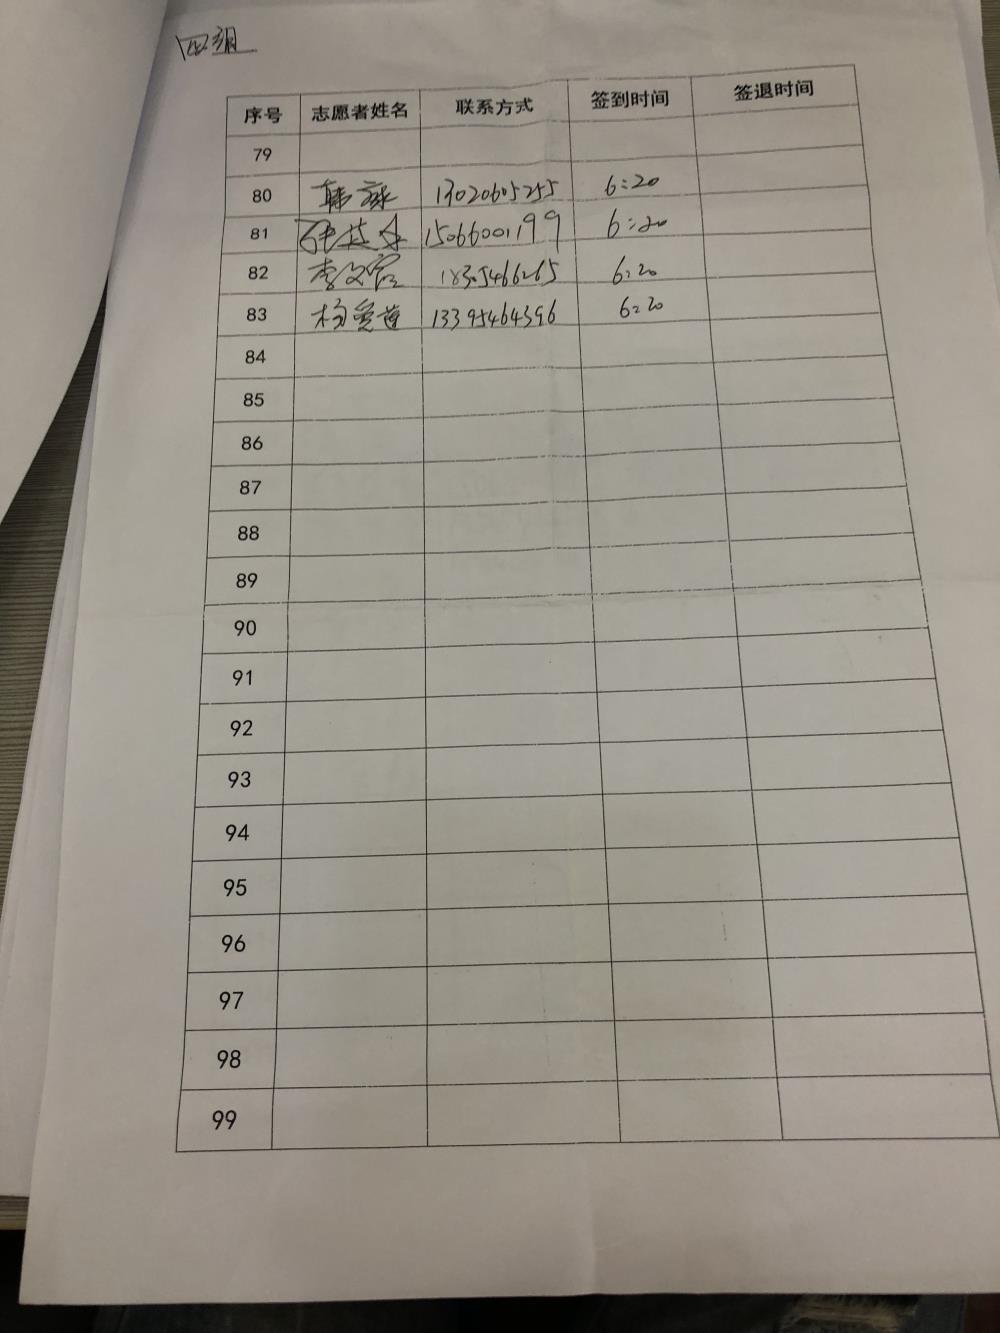 四组
序号 志愿者姓名 联系方式 签到时间 签退时间
79
80 韩 13020605255 6:20
81 15066001199 6:20
82 李文 18305466265 6:20
83 杨爱莲 13395464396 6:20
84
85
86
87
88
89
90
91
92
93
94
95
96
97
98
99